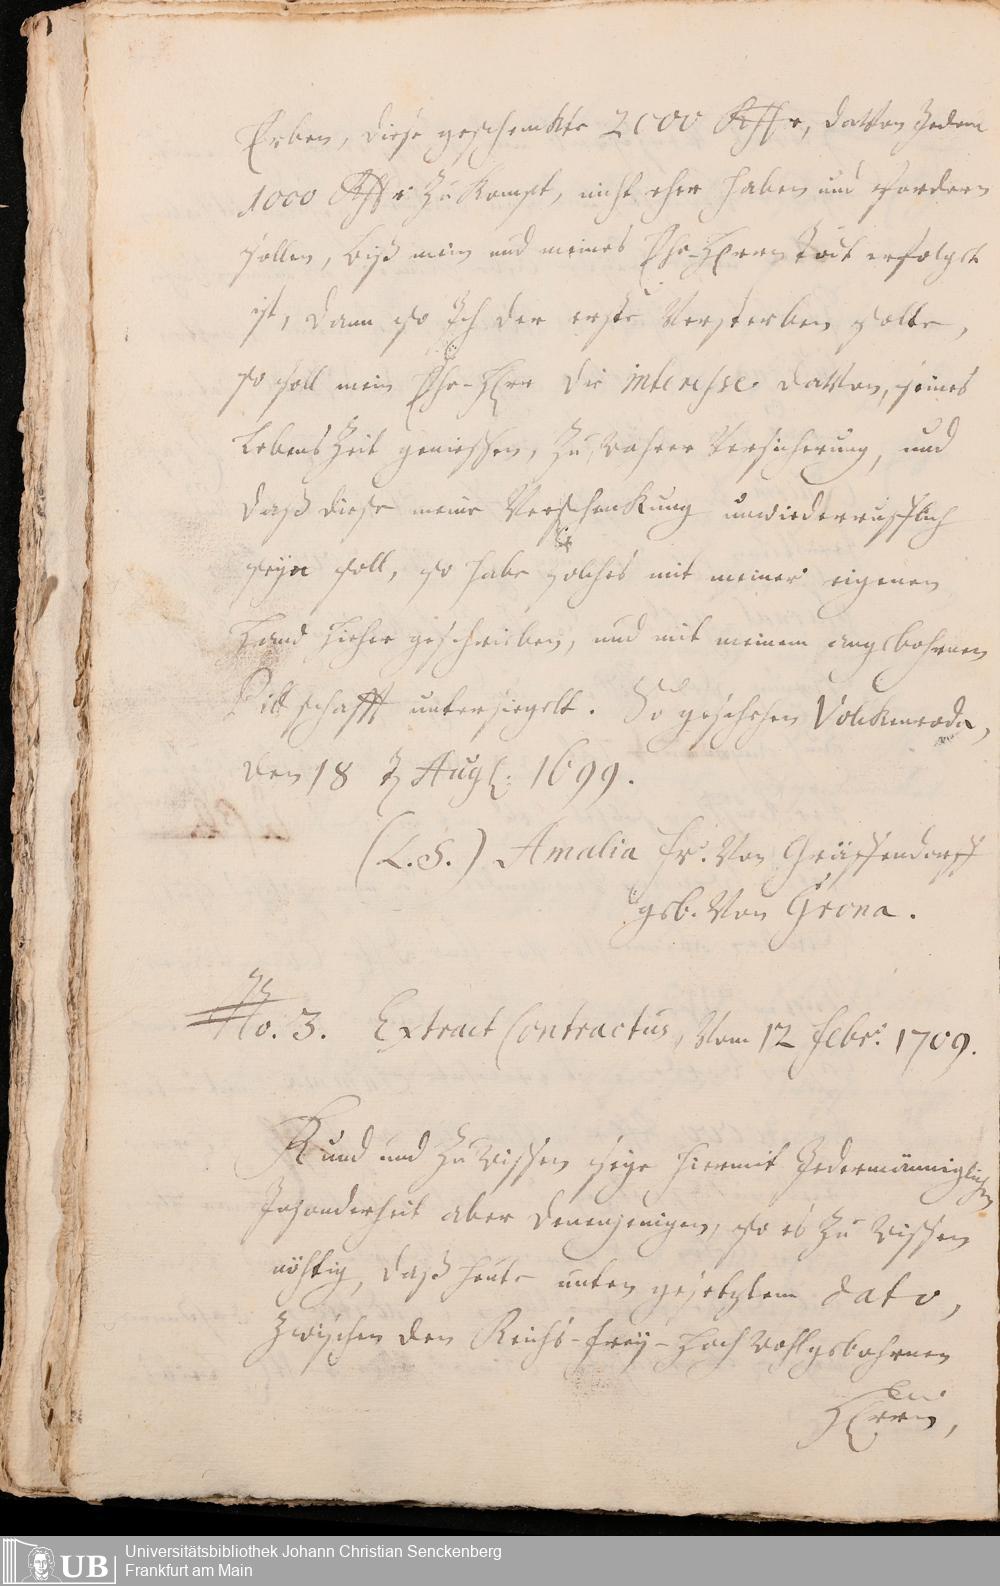 Erben, diese geschenkte 2000 Rthlr, davon Jedem
1000 Rthlr Zu Kompt, nicht eher haben und fordern
sollen, biß mein und meines Ehe-Herrn Todt erfolget
ist, dann so Ich der erste Versterben solte,
so soll mein Ehe-Herr die interesse davon, seines
Lebens Zeit geniessen, Zu wahrer Versicherung, und
daß diese meine Verschenkung unwiederrufflich
seyn soll, so habe solches mit meiner eigenen
Hand hieher geschrieben, und mit meinem angebohrnen
Pittschafft untersiegelt. So geschehen Volckenroda,
den 18 Aug: 1699.
(L.S.) Amalia Fr. Von Gräffendorff
geb. Von Grona.
No. 3. Extract Contractus, Vom 12 Febr: 1709.
Kund und Zu wissen seye hiermit Jedermänniglichen
Insonderheit aber denenjenigen, so es Zu wissen
nöhtig, daß heute unten gesetztem dato,
Zwischen den Reichs-frey-Hoch Wohlgebohrnen
Herrn,
UB
Universitätsbibliothek Johann Christian Senckenberg
Frankfurt am Main